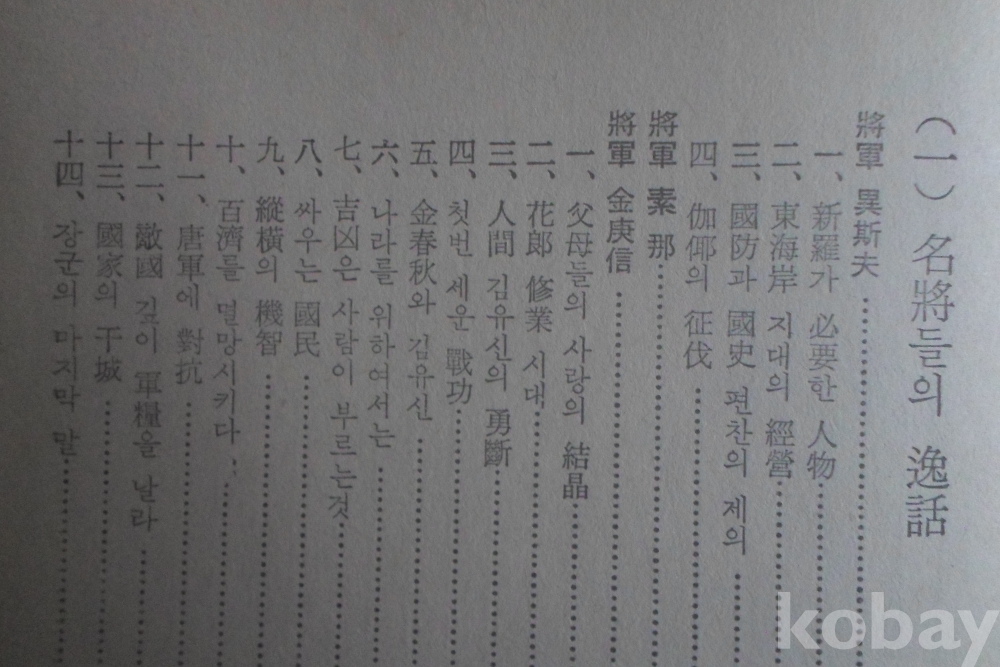 (一) 名將들의 逸話
將軍 異斯夫
一、新羅가 必要한 人物
二、東海岸 지대의 經營
三、國防과 國史 편찬의 제의
四、伽倻의 征伐
將軍 素那
將軍 金庚信
一、父母들의 사랑의 結晶
二、花郞 修業 시대
三、人間 김유신의 勇斷
四、첫번 세운 戰功
五、金春秋와 김유신
六、나라를 위하여서는
七、吉凶은 사람이 부르는것
八、싸우는 國民
九、縱橫의 機智
十、百濟를 멸망시키다
十一、唐軍에 對抗
十二、敵國 깊이 軍糧을 날라
十三、國家의 干城
十四、장군의 마지막 말
kobay